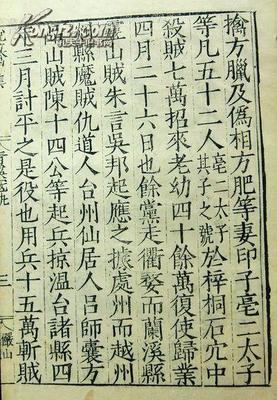 擒方臘及僞相方肥等妻印子亳二太子
等凡五十二人亳二太子其子之號於梓桐石穴中
殺賊七萬招來老幼四十餘萬復使歸業
四月二十六日也餘黨走衢婺而蘭溪縣
靈山賊朱言吳邦起應之據處州而越州
縣魔賊仇道人台州仙居人呂師囊方
山賊陳十四公等起兵掠溫台諸縣四
三月計平之是役也用兵十五萬斬賊